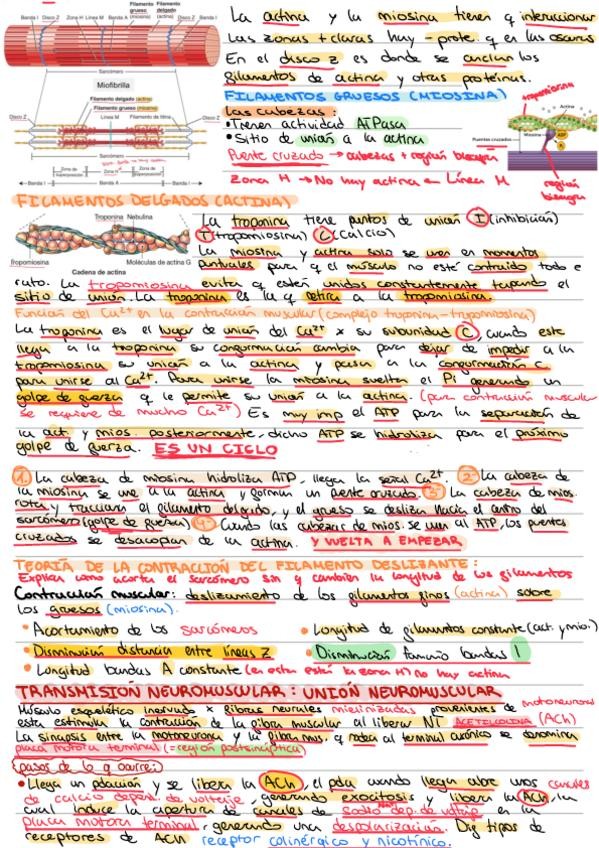 Filamento grueso (miosina)
Filamento delgado (actina)
Banda I Disco Z Zona H Línea M Banda A Disco Z Banda I
Sarcómero
Miofibrilla
Filamento delgado (actina)
Filamento grueso (miosina)
Disco Z Línea M Filamento de titina Disco Z
Sarcómero
Zona de superposición Zona H Zona de superposición
Banda I Banda A Banda I
La actina y la miosina tienen q interaccionar
Las zonas + claras hay - prote. q en las oscuras
En el disco z es donde se anclan los
filamentos de actina y otras proteínas.
FILAMENTOS GRUESOS (MIOSINA)
Las cabezas:
• Tienen actividad ATPasa
• Sitio de unión a la actina
Puente cruzado → cabezas + región bisagra
Zona H → No hay actina en Línea M
tropomiosina
Actina
Puentes cruzados
Miosina
ADP
Pi
región bisagra
FILAMENTOS DELGADOS (ACTINA)
Troponina Nebulina
Tropomiosina Moléculas de actina G
Cadena de actina
La troponina tiene puntos de unión I (inhibición)
T (tropomiosina) C (calcio)
La miosina y actina solo se unen en momentos
puntuales para q el músculo no esté contraido todo e
rato. La tropomiosina evita q estén unidos constantemente tapando el
sitio de unión. La troponina es la q retira a la tropomiosina.
Función del Ca2+ en la contracción muscular (complejo troponina-tropomiosina)
La troponina es el lugar de unión del Ca2+ x su subunidad C, cuando este
llega a la troponina su conformación cambia para dejar de impedir a la
tropomiosina su unión a la actina y pasa a la conformación C
para unirse al Ca2+. Para unirse la miosina suelta el Pi generando un
golpe de fuerza q le permite su unión a la actina. (para contracción muscular
se requiere de mucho Ca2+) Es muy imp el ATP para la separación de
la act. y mios posteriormente, dicho ATP se hidroliza para el próximo
golpe de fuerza. ES UN CICLO
1. La cabeza de miosina hidroliza ATP, llega la señal Ca2+. 2. La cabeza de
la miosina se une a la actina y forman un puente cruzado. 3. La cabeza de mios.
rota y tracciona el filamento delgado, y el grueso se desliza hacia el centro del
sarcómero (golpe de fuerza) 4. Cuando las cabezas de mios. se unen al ATP, los puentes
cruzados se desacoplan de la actina. Y VUELTA A EMPEZAR
TEORÍA DE LA CONTRACCIÓN DEL FILAMENTO DESLIZANTE:
Explica como acorta el sarcómero sin q cambien la longitud de los filamentos
Contracción muscular: deslizamiento de los filamentos finos (actina) sobre
los gruesos (miosina).
• Acortamiento de los sarcómeros
• Longitud de filamentos constante (act. y mio.)
• Disminución distancia entre líneas Z
• Disminución tamaño bandas I
• Longitud bandas A constante (en esta está la zona H) no hay actina
TRANSMISIÓN NEUROMUSCULAR: UNIÓN NEUROMUSCULAR
Músculo esquelético inervado x fibras neurales mielinizadas provenientes de motoneuronas
esta estimula la contracción de la fibra muscular al liberar NT ACETILCOLINA (ACh)
La sinapsis entre la motoneurona y la fibra mus. q rodea al terminal axónico se denomina
placa motora terminal (= región postsináptica)
pasos de lo q ocurre:
• Llega un pdacción y se libera la ACh, el pda cuando llega abre unos canales
de calcio depend. de voltaje, generando exocitosis y libera la ACh, la
cual induce la apertura de canales de sodio dep. de voltaje en la
placa motora terminal, generando una despolarización. Dig tipos de
receptores de ACh receptor colinérgico y nicotínico.